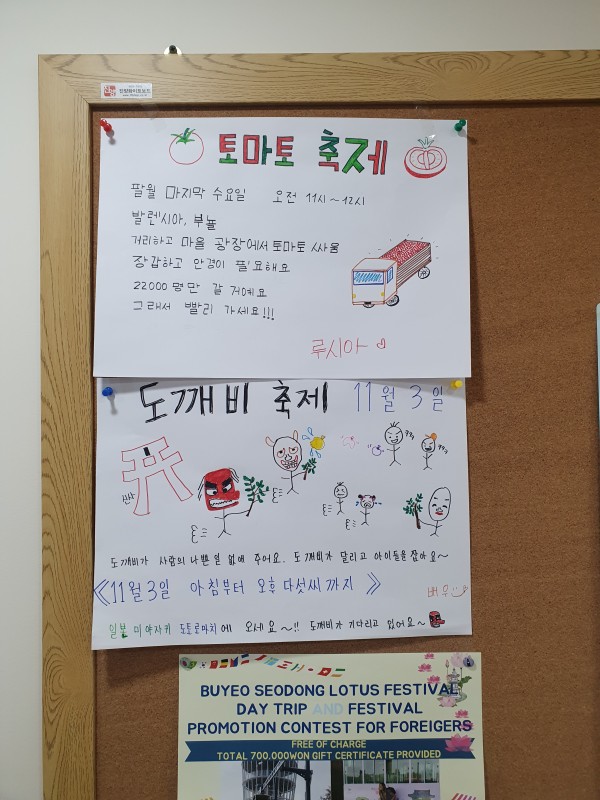 토마토 축제
팔월 마지막 수요일 오전 11시~12시
발렌시아, 부뇰
거리하고 마을 광장에서 토마토 싸움
장갑하고 안경이 필요해요
22000 명만 갈 거예요
그래서 빨리 가세요!!!
루시아
도깨비 축제 11월 3일
도깨비가 사람의 나쁜 일 없애 주어요. 도깨비가 달리고 아이들을 잡아요~
《11월 3일 아침부터 오후 다섯씨 까지》
배우
일본 미야자키 도토로마치에 오세요~!! 도깨비가 기다리고 있어요~
BUYEO SEODONG LOTUS FESTIVAL
DAY TRIP AND FESTIVAL
PROMOTION CONTEST FOR FOREIGERS
FREE OF CHARGE
TOTAL 700,000WON GIFT CERTIFICATE PROVIDED